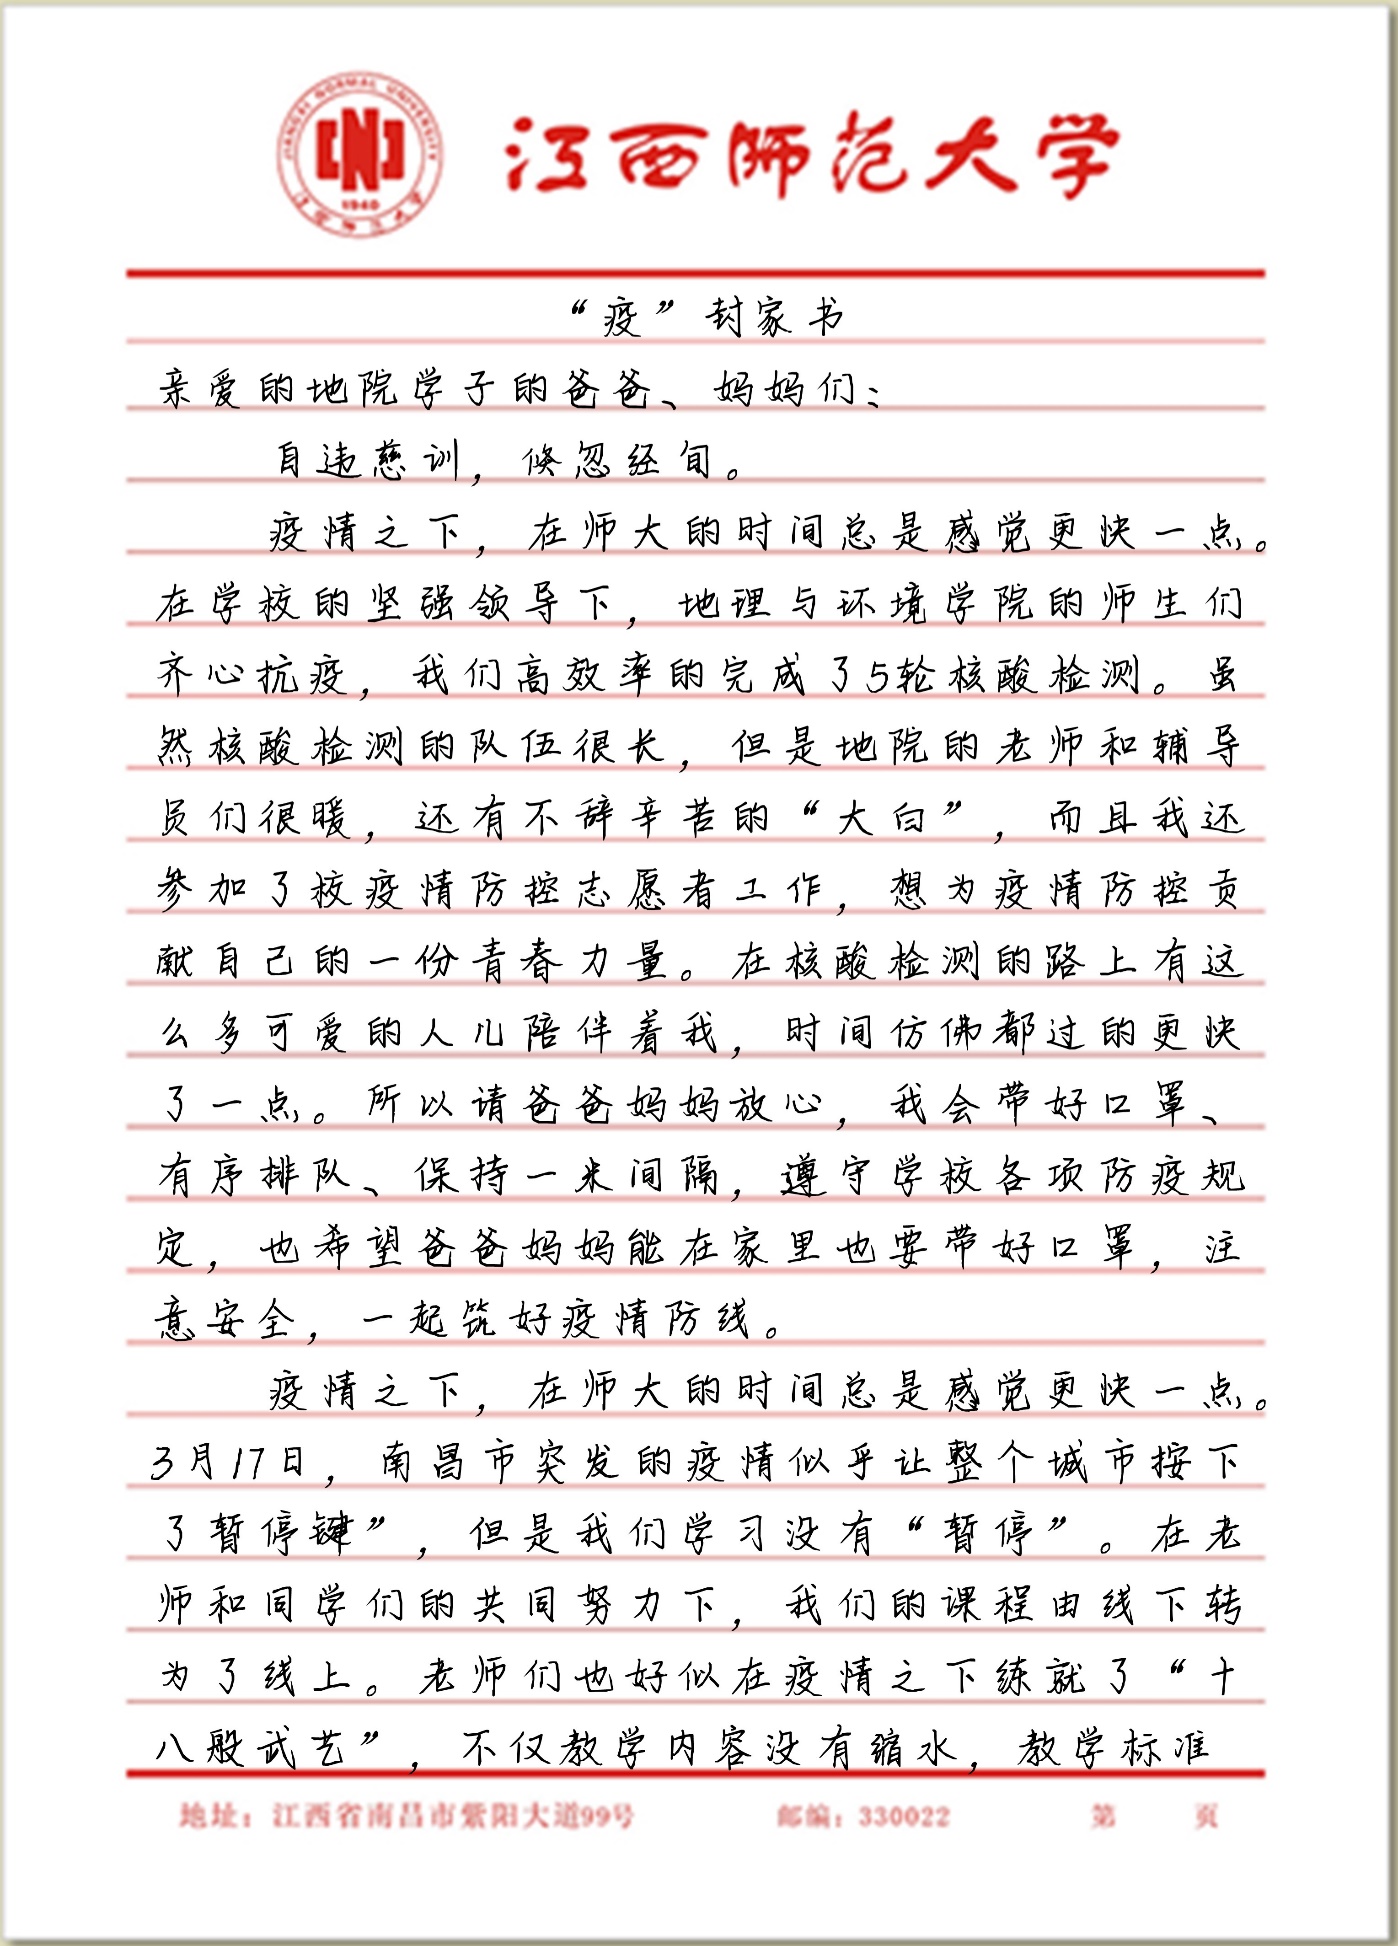 JIANGXI NORMAL UNIVERSITY
1940
江西师范大学
江西师范大学
“疫”封家书
亲爱的地院学子的爸爸、妈妈们：
自违慈训，倏忽经旬。
疫情之下，在师大的时间总是感觉更快一点。
在学校的坚强领导下，地理与环境学院的师生们
齐心抗疫，我们高效率的完成了5轮核酸检测。虽
然核酸检测的队伍很长，但是地院的老师和辅导
员们很暖，还有不辞辛苦的“大白”，而且我还
参加了校疫情防控志愿者工作，想为疫情防控贡
献自己的一份青春力量。在核酸检测的路上有这
么多可爱的人儿陪伴着我，时间仿佛都过的更快
了一点。所以请爸爸妈妈放心，我会带好口罩、
有序排队、保持一米间隔，遵守学校各项防疫规
定，也希望爸爸妈妈能在家里也要带好口罩，注
意安全，一起筑好疫情防线。
疫情之下，在师大的时间总是感觉更快一点。
3月17日，南昌市突发的疫情似乎让整个城市按下
了暂停键”，但是我们学习没有“暂停”。在老
师和同学们的共同努力下，我们的课程由线下转
为了线上。老师们也好似在疫情之下练就了“十
八般武艺”，不仅教学内容没有缩水，教学标准
地址：江西省南昌市紫阳大道99号 邮编：330022 第 页